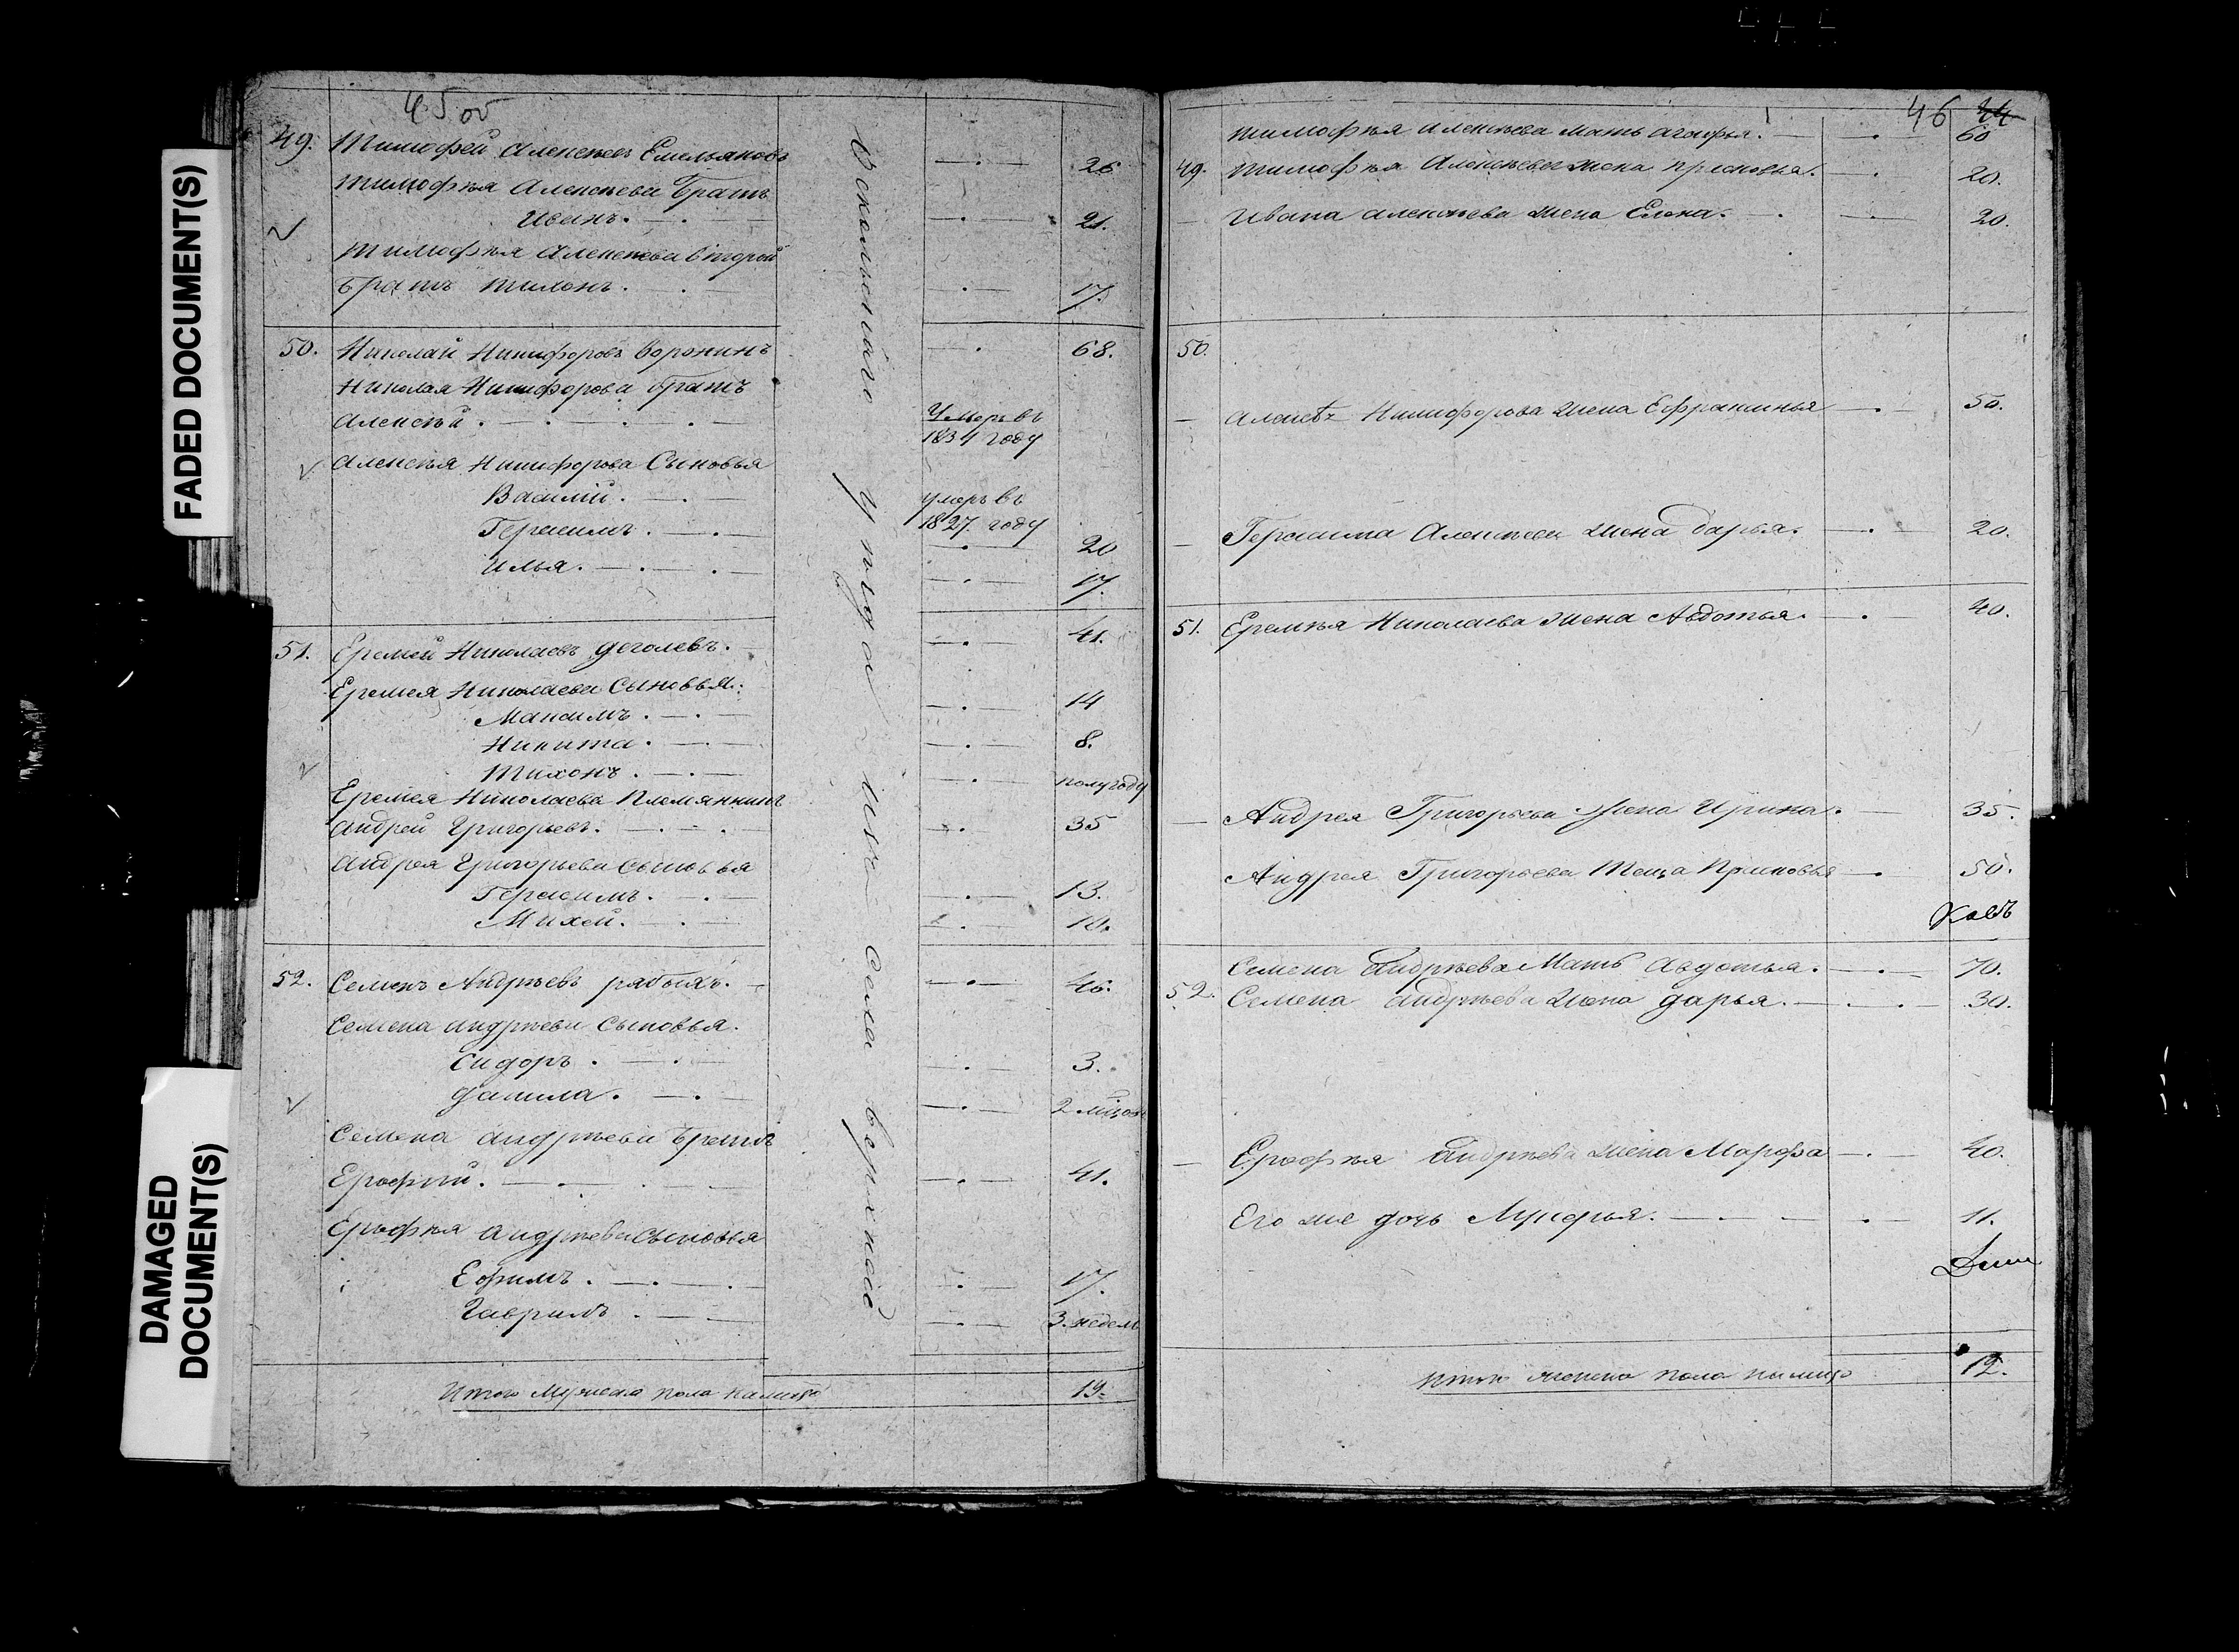 FADED DOCUMENT(S)
DAMAGED
DOCUMENT(S)
45 об
49. Тимофей Алексеевъ Емельяновъ 26
Тимофея Алексеева братъ
Иванъ. 21.
Тимофея Алексеева второй
братъ Тихонъ. 17.
50. Николай Никифоровъ Воронинъ 68.
Николая Никифорова братъ
Алексей. Умеръ въ
1834 году
Алексея Никифорова сыновья
Василий. умеръ въ
1827 году
Герасимъ. 20
Илья. 17.
51. Еремей Николаевъ 41.
Еремея Николаева сыновья:
Максимъ. 14
Никита. 8.
Тихонъ. полугоду
Еремея Николаева племянникъ
Андрей Григорьевъ. 35
Андрея Григорьева сыновья
Герасимъ. 13.
Михей. 10.
52. Семенъ Андреевъ рябыхъ. 46.
Семена Андреева сыновья.
Сидоръ. 3.
Данила. 2
Семена Андреева братъ
Ерофѣй. 41.
Ерофѣя Андреева сыновья
Ефимъ. 17.
Гаврилъ. 3. недель
Итого мужеска пола налицо 19.
уезда села верхнее
46 44
Тимофея Алексеева мать Агафья. 60
49. Тимофея Алексеева жена 20.
Ивана Алексеева жена Елена. 20.
50.
Никифорова жена Ефросинья 50.
Герасима Алексеева жена Дарья. 20.
51. Еремѣя Николаева жена Авдотья. 40.
Андрея Григорьева жена Ирина. 35.
Андрея Григорьева теща 50.
Семена Андреева мать Авдотья. 70.
52. Семена Андреева жена Дарья. 30.
Ерофѣя Андреева жена Марфа 40.
Его же дочь Лукерья. 11.
Итого женска пола налицо 12.